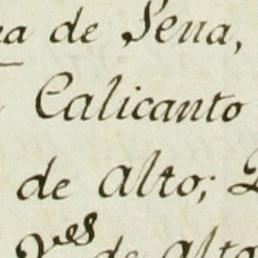 de Sena,
Calicanto
de alto;
de alto